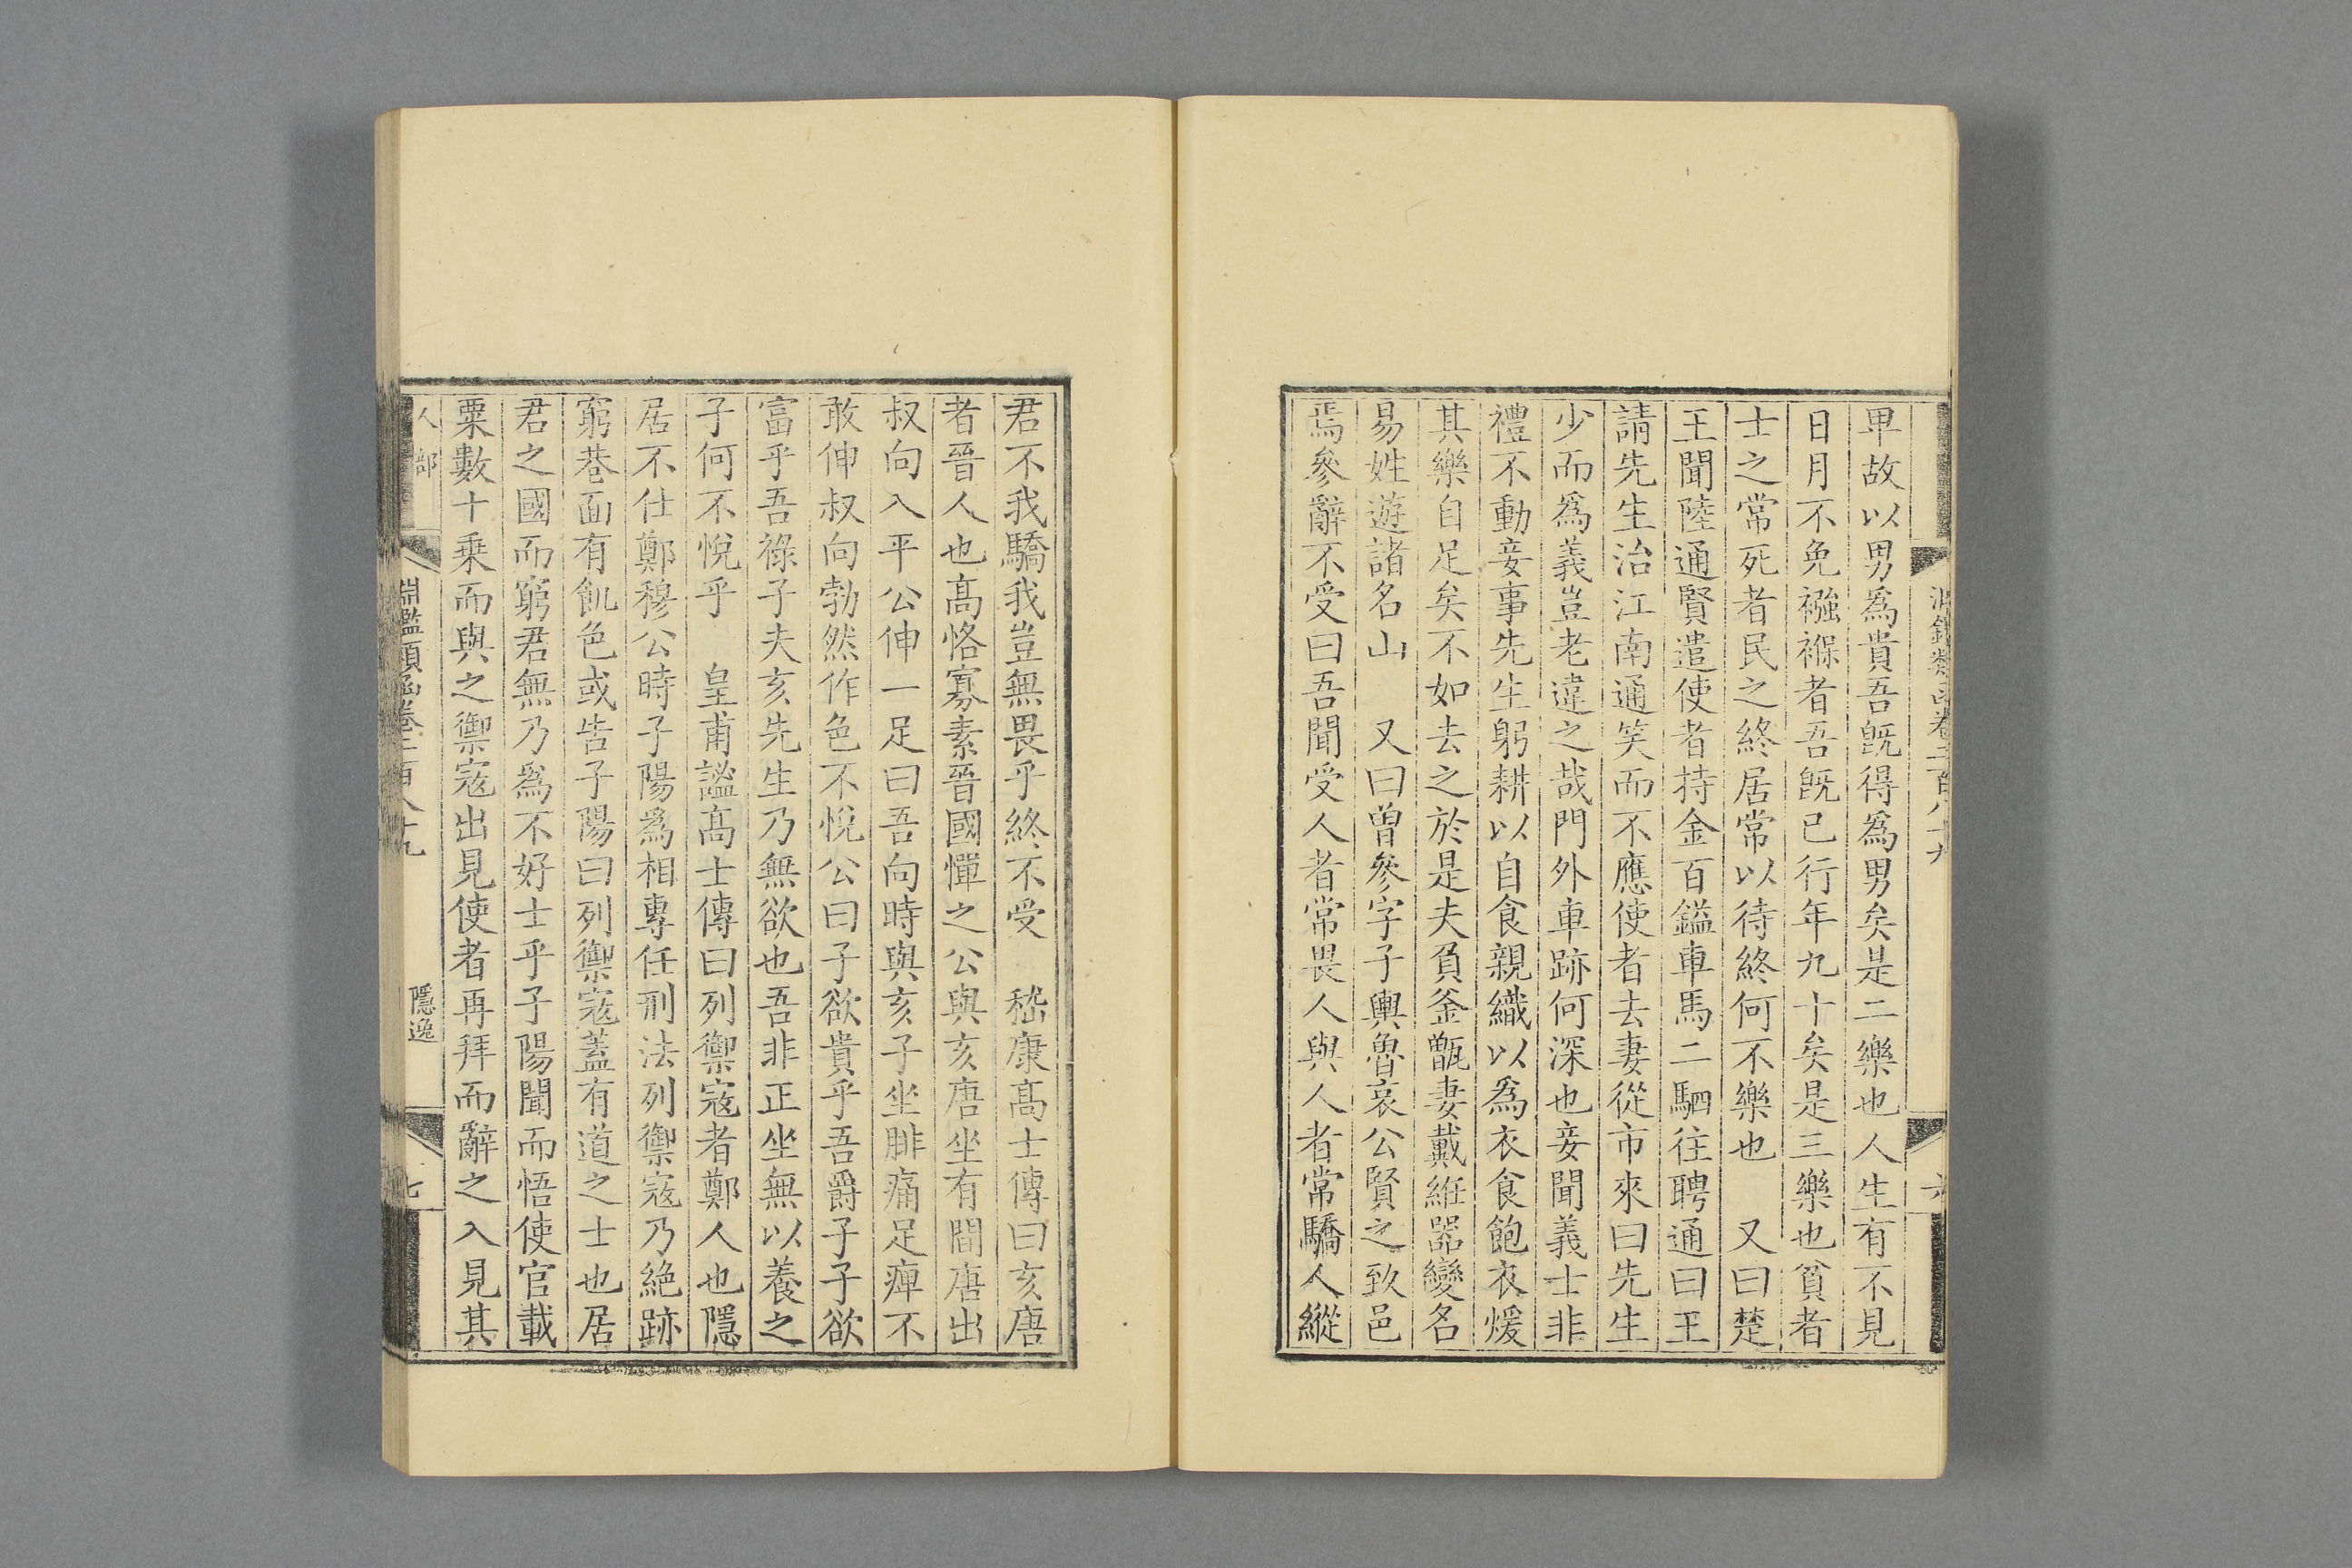 卑故以男爲貴吾旣得爲男矣是二樂也人生有不見
日月不免襁褓者吾旣已行年九十矣是三樂也貧者
士之常死者民之終居常以待終何不樂也　又曰楚
王聞陸通賢遣使者持金百鎰車馬二駟往聘通曰王
請先生治江南通笑而不應使者去妻從市來曰先生
少而爲義豈老違之哉門外車跡何深也妾聞義士非
禮不動妾事先生躬耕以自食親織以爲衣食飽衣煖
其樂自足矣不如去之於是夫負釜甑妻戴維器變名
易姓遊諸名山　又曰曾參字子輿魯哀公賢之致邑
焉參辭不受曰吾聞受人者常畏人與人者常驕人縱
君不我驕我豈無畏乎終不受　嵇康高士傳曰亥唐
者晉人也高恪寡素晉國憚之公與亥唐坐有間唐出
叔向入平公伸一足曰吾向時與亥子坐腓痛足痺不
敢伸叔向勃然作色不悅公曰子欲貴乎吾爵子子欲
富乎吾祿子夫亥先生乃無欲也吾非正坐無以養之
子何不悅乎　皇甫謐高士傳曰列禦寇者鄭人也隱
居不仕鄭穆公時子陽爲相專任刑法列禦寇乃絶跡
窮巷面有飢色或告子陽曰列禦寇蓋有道之士也居
君之國而窮君無乃爲不好士乎子陽聞而悟使官載
粟數十乘而與之禦寇出見使者再拜而辭之入見其
人部
淵鑑類函卷二百八十九
隱逸
七